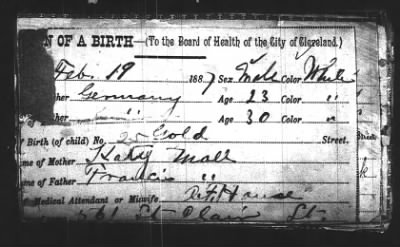 N OF A BIRTH—(To the Board of Health of the City of Cleveland.)
Feb. 19 1887 Sex Male Color White
ther Germany Age 23 Color "
of ther " Age 30 Color "
f Birth (of child) No. 25 Gold Street.
me of Mother Katy Mall
me of Father Francis "
Medical Attendant or Midwife
St Clair St.